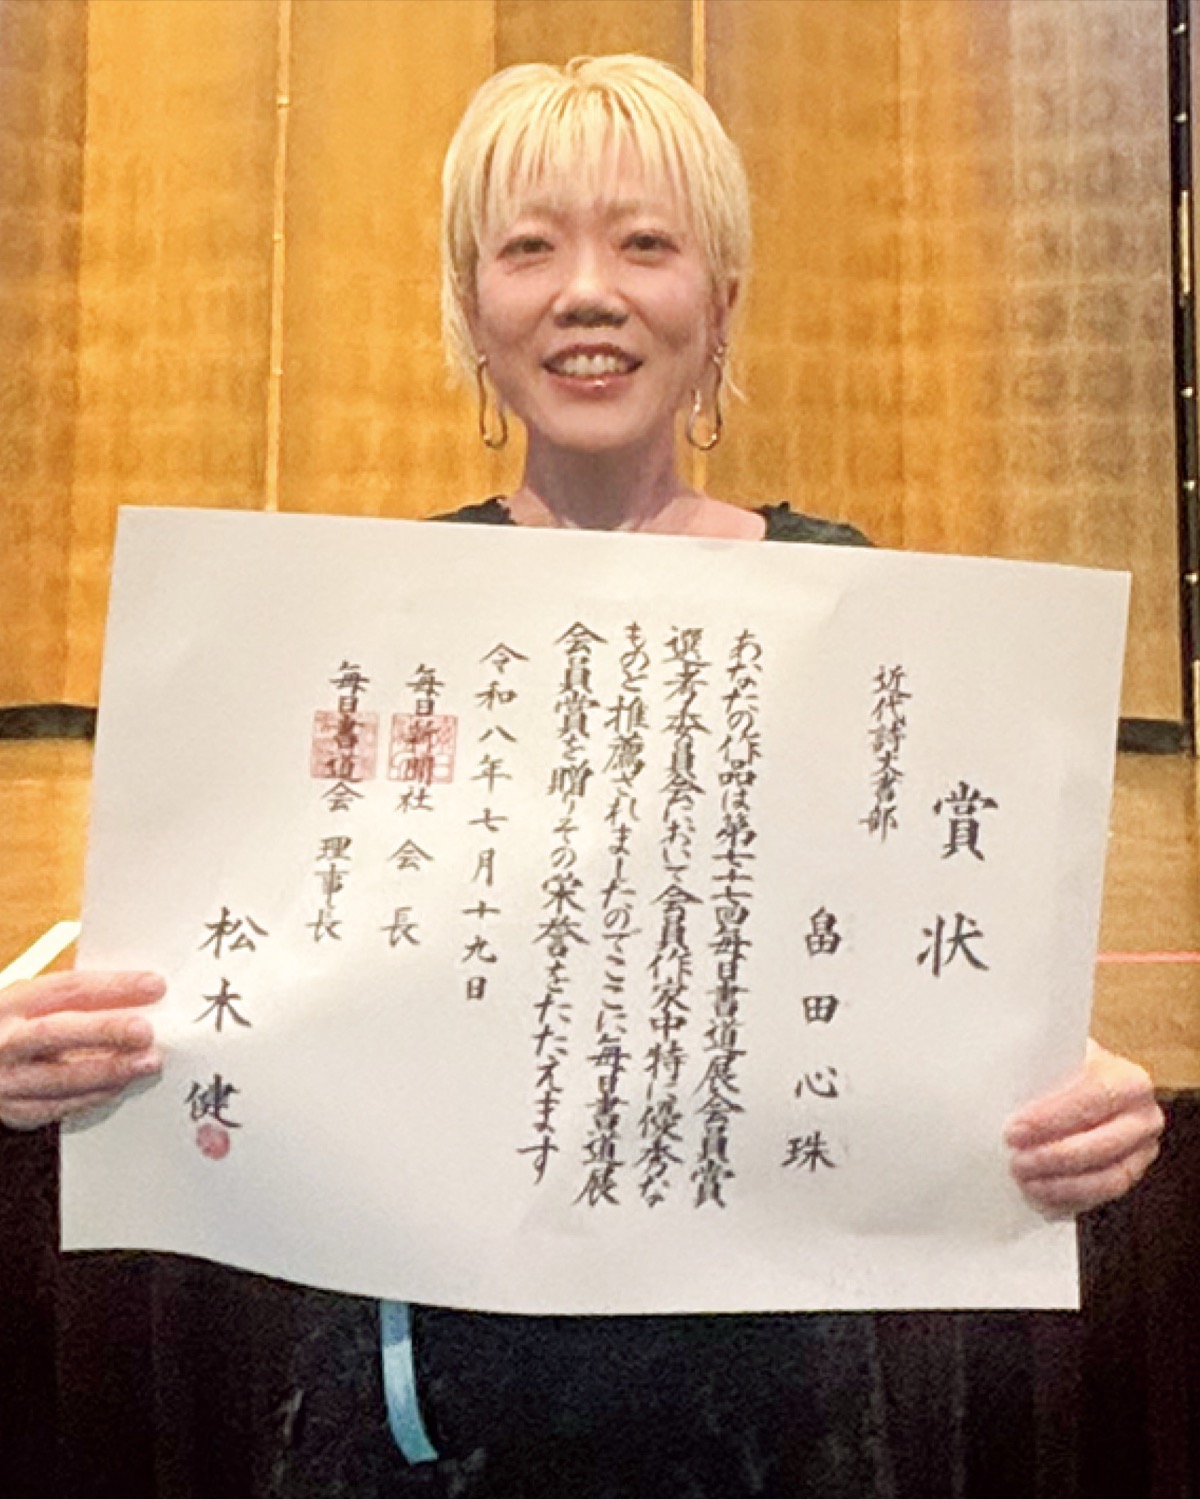 賞状
近代詩文書部
畠田心珠
あなたの作品は第七十七回毎日書道展会員賞
選考委員会において会員作家中特に優秀な
ものと推薦されましたのでここに毎日書道展
会員賞を贈りその栄誉をたたえます
令和八年七月十九日
毎日新聞社 会長
毎日書道会 理事長
松木健